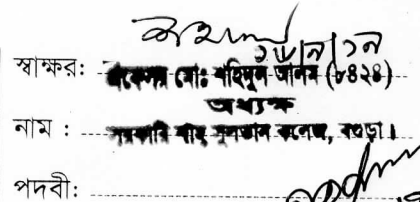 স্বাক্ষর: প্রফেসর মোঃ শহিদুল আলম (৮৪২৪)
অধ্যক্ষ
নাম : সরকারি শাহ সুলতান কলেজ, বগুড়া।
পদবী: